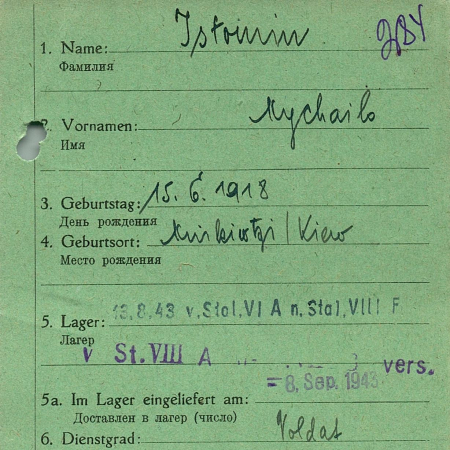 1. Name: Istomin
Фамилия
2. Vornamen: Mychailo
Имя
3. Geburtstag: 15. 6. 1918
День рождения
4. Geburtsort: / Kiew
Место рождения
13.8.43 v. Stal. VI A n. Stal. VIII F
5. Lager:
Лагерь
v St. VIII A vers.
= 8. Sep. 1943
5a. Im Lager eingeliefert am:
Доставлен в лагерь (число)
6. Dienstgrad: Soldat